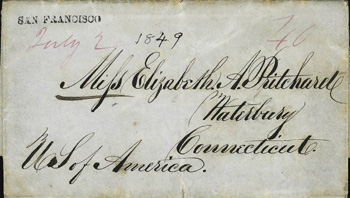 SAN FRANCISCO
July 2, 1849
Miss Elizabeth A. Pritchard
Waterbury
Connecticut.
U.S of America.